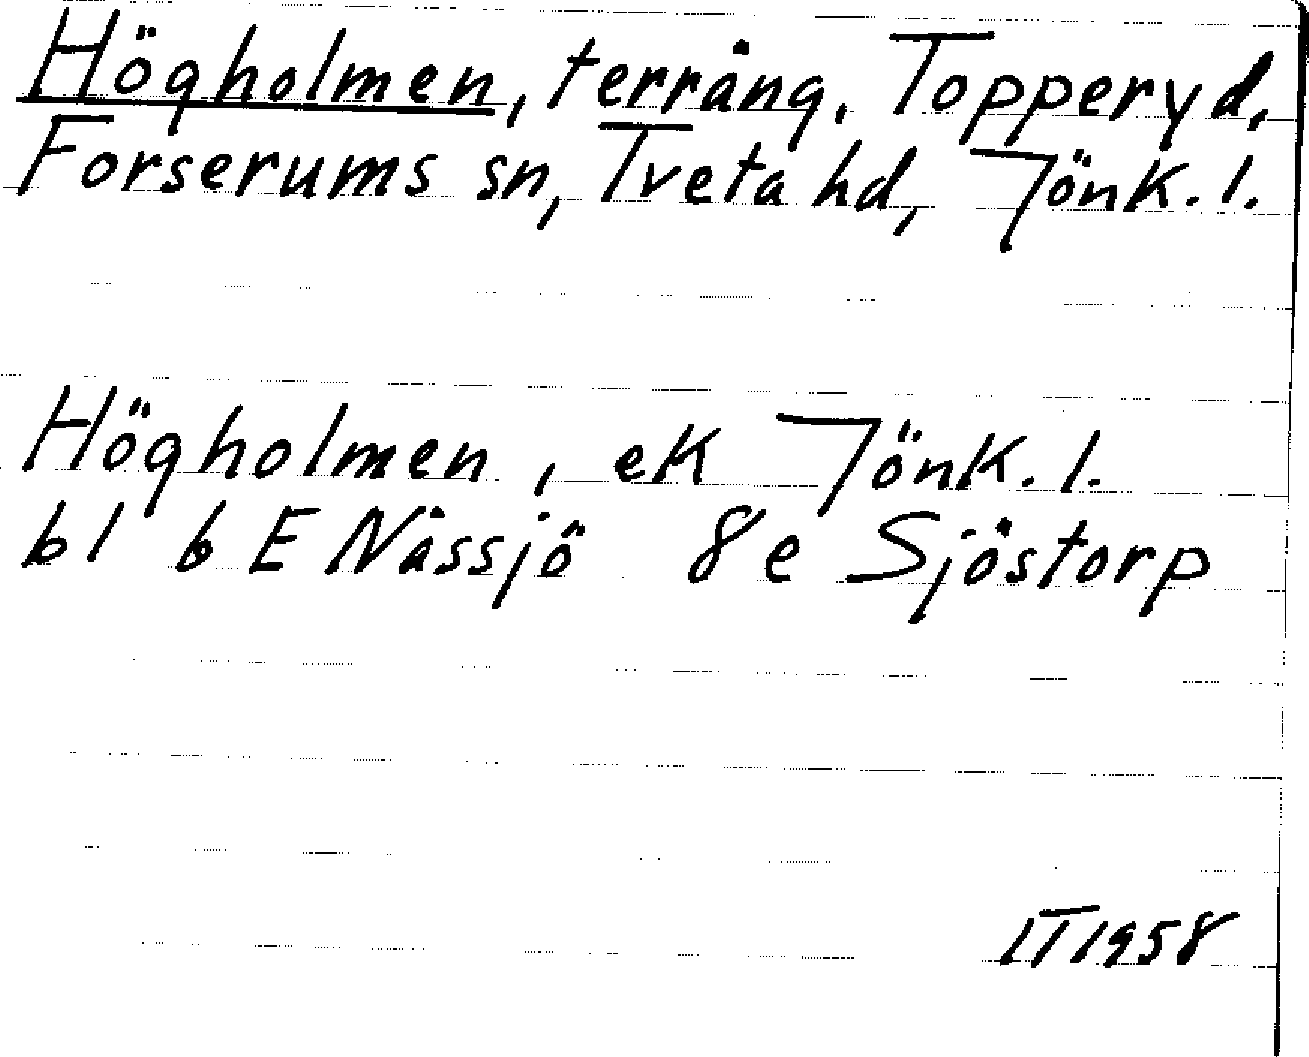 Högholmen, terräng. Topperyd,
Forserums sn, Tveta hd, Jönk. l.
Högholmen, ek Jönk. l.
bl 6 E Nässjö 8 e Sjöstorp
IT 1958